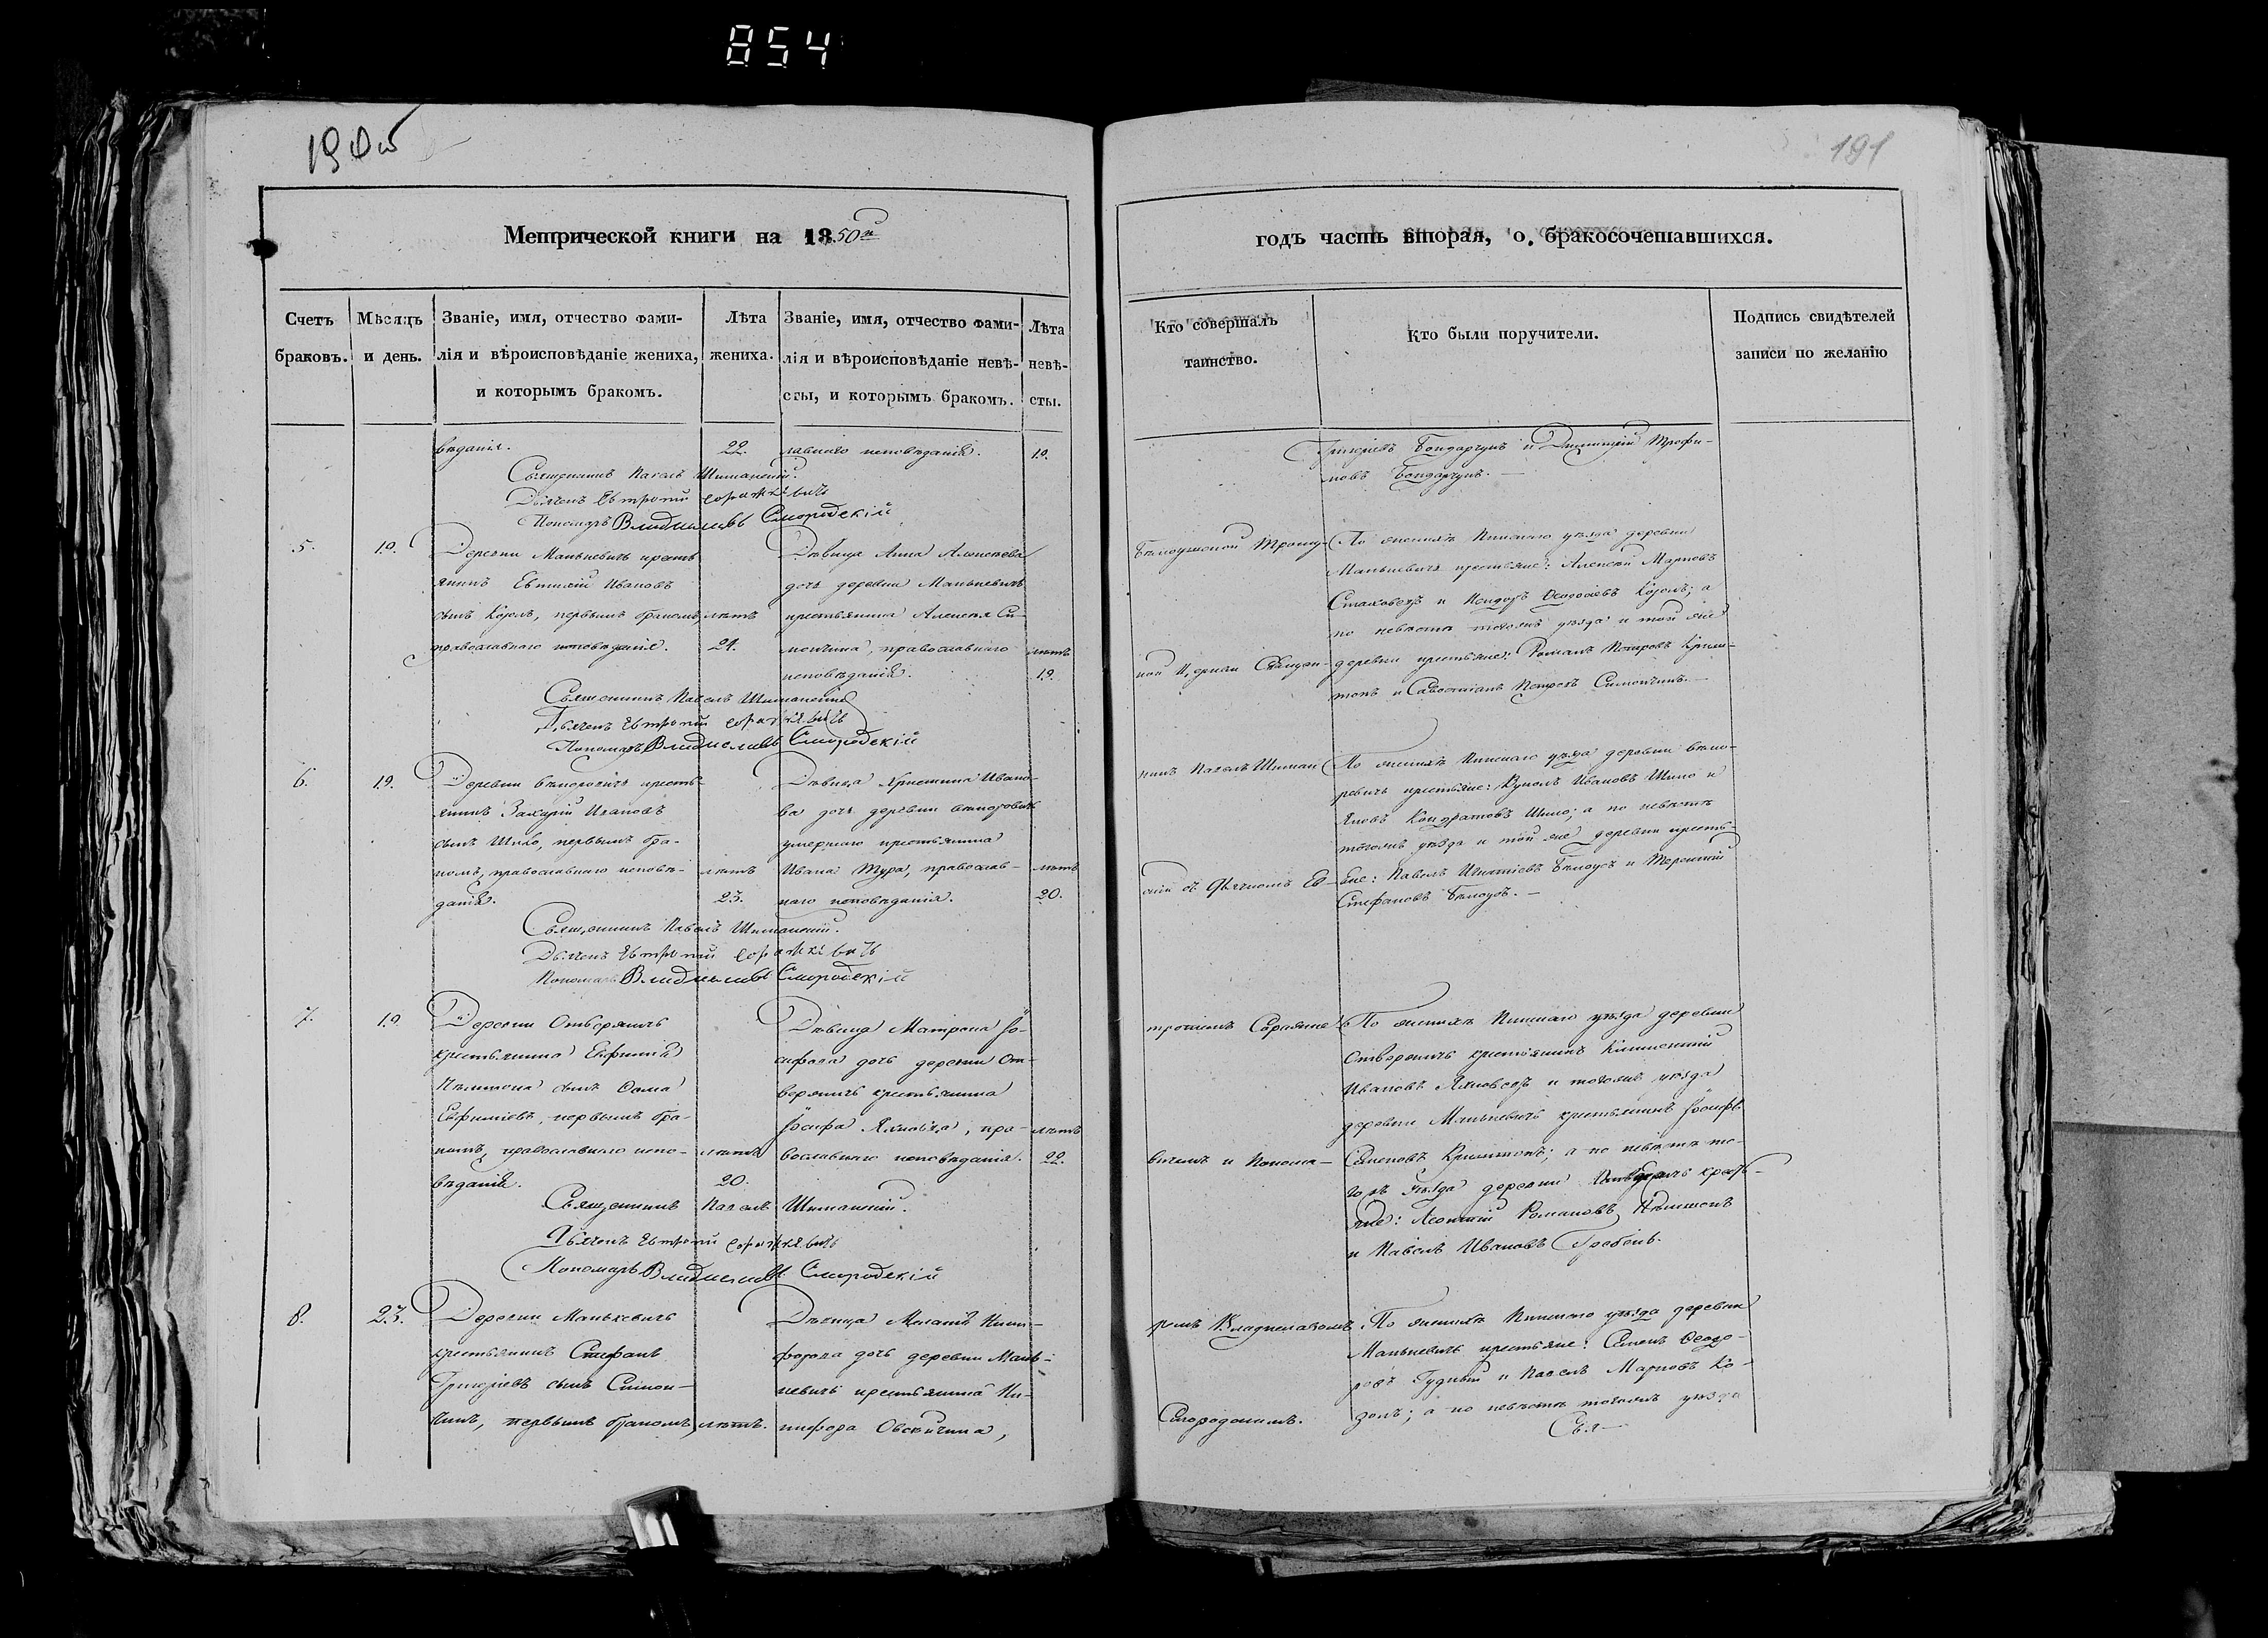 854
190 об
191
Метрической книги на 1850й
годъ часть вторая, о бракосочетавшихся.
Счетъ
браковъ.
Мѣсяцъ
и день.
Званіе, имя, отчество фами-
лія и вѣроисповѣданіе жениха,
и которымъ бракомъ.
Лѣта
жениха.
Званіе, имя, отчество фами-
лія и вѣроисповѣданіе невѣ-
сты, и которымъ бракомъ.
Лѣта
невѣ-
сты.
Кто совершалъ
таинство.
Кто были поручители.
Подпись свидѣтелей
записи по желанію
вѣданія.
22.
лавнаго исповѣданія.
19.
Священникъ Павелъ Шиманскій.
Дьячекъ Евтропій
Пономарь Владиславъ Смородскій
5.
19.
Деревни Манькевичъ кресть
янинъ Евтихій Ивановъ
сынъ Козолъ, первымъ бракомъ,
православнаго исповѣданія.
лѣтъ
24.
Дѣвица Анна Алексѣева
дочь деревни Манькевичъ
крестьянина Алексѣя Си-
мончика, православнаго
исповѣданія.
лѣтъ
19.
Священникъ Павелъ Шиманскій
Дьячекъ Евтропій
Пономарь Владиславъ Смородскій
6.
19.
Деревни Вѣторовичъ кресть-
янинъ Захарій Ивановъ
сынъ Шило, первымъ бра-
комъ, православнаго исповѣ-
данія.
лѣтъ
23.
Дѣвица Христина Ивано-
ва дочь деревни
умершаго крестьянина
Ивана Тура, православ-
наго исповѣданія.
лѣтъ
20.
Священникъ Павелъ Шиманскій.
Дьячекъ Евтропій
Пономарь Владиславъ Смородскій
7.
19.
Деревни Отвержичъ
крестьянина Евфимія
сынъ Сава
Евфиміевъ, первымъ бра-
комъ, православнаго испо-
вѣданія.
лѣтъ
20.
Дѣвица Матрона Іо-
сифова дочь деревни От-
вержичъ крестьянина
Іосифа Яхновца, пра-
вославнаго исповѣданія.
лѣтъ
22.
Священникъ Павелъ Шиманскій.
Дьячекъ Евтропій
Пономарь Владиславъ Смородскій
8.
23.
Деревни Манькевичъ
крестьянинъ Стефанъ
Григоріевъ сынъ Симон-
чикъ, первымъ бракомъ,
лѣтъ.
Дѣвица Меланія Ники-
форова дочь деревни Мань-
кевичъ крестьянина Ни-
кифора Овсѣичика,
Бѣлоушской Троиц-
кой Церкви Священ-
никъ Павелъ Шиман
скій съ Дьячкомъ Ев-
тропіемъ
вичемъ и Понома-
ремъ Владиславомъ
Смородскимъ.
Григоріевъ Бондарчукъ и Димитрій Трофи-
мовъ Бондарчукъ.
По женихѣ Пинскаго уѣзда деревни
Манькевичъ крестьяне: Алексѣй Марковъ
Стаховецъ и Исидоръ Ѳеодосіевъ Козолъ; а
по невѣстѣ тогожъ уѣзда и той же
деревни крестьяне: Романъ Петровъ
и Савостіанъ Петровъ Симончикъ.
По женихѣ Пинскаго уѣзда деревни Вѣто-
ревичъ крестьяне: Ивановъ Шило и
Яковъ Кондратовъ Шило; а по невѣстѣ
тогожъ уѣзда и той же деревни кресть-
яне: Павелъ Игнатіевъ Бѣлоусъ и Терентій
Стефановъ Бѣлоусъ.
По женихѣ Пинскаго уѣзда деревни
Отвержичъ крестьянинъ
Ивановъ Яхновецъ и тогожъ уѣзда
деревни Манькевичъ крестьянинъ Іосифъ
Семеновъ а по невѣстѣ то-
гожъ уѣзда деревни Отвержичъ кресть-
яне: Леонтій Романовъ
и Павелъ Ивановъ Гребень.
По женихѣ Пинскаго уѣзда деревни
Манькевичъ крестьяне: Семенъ Ѳеодо-
ровъ Гудный и Павелъ Марковъ Ко-
золъ; а по невѣстѣ тогожъ уѣзда
Свя-